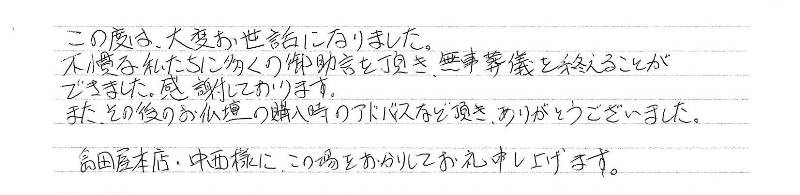 この度は、大変お世話になりました。
不慣な私たちに多くの御助言を頂き、無事葬儀を終えることが
できました。感謝しております。
また、その後のお仏壇の購入時のアドバスなど頂き、ありがとうございました。
富田屋本店・中西様に、この場をおかりしてお礼申し上げます。